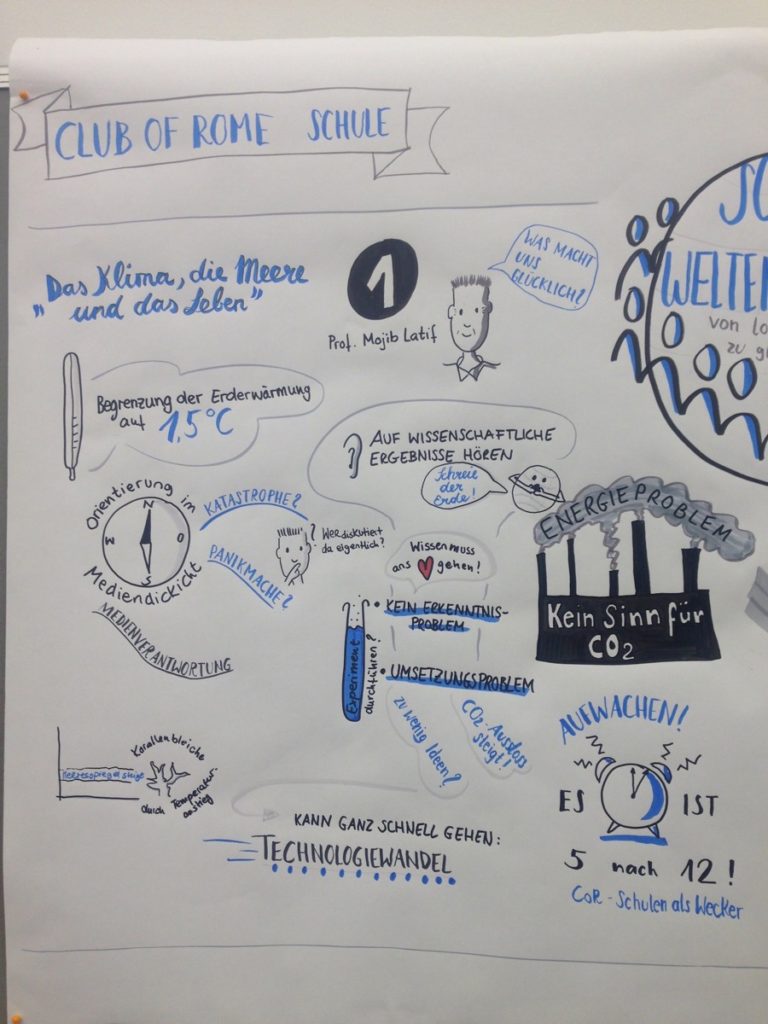 CLUB OF ROME SCHULE
"Das Klima, die Meere
und das Leben"
1
Prof. Mojib Latif
WAS MACHT
UNS
GLÜCKLICH?
WELTEN
von lo
zu g
Begrenzung der Erderwärmung
auf 1,5°C
AUF WISSENSCHAFTLICHE
ERGEBNISSE HÖREN
Schreie
der
Erde!
Orientierung im
Mediendickicht
N
W
O
S
KATASTROPHE?
PANIKMACHE?
MEDIENVERANTWORTUNG
?
Wer diskutiert
da eigentlich?
Wissen muss
ans gehen!
• KEIN ERKENNTNIS-
PROBLEM
• UMSETZUNGSPROBLEM
Experiment
durchführen?
zu wenig Ideen?
CO2-Ausstoss
steigt!
ENERGIEPROBLEM
Kein Sinn für
CO2
Meeresspiegel steigt
Korallenbleiche
durch Temperatur-
anstieg
KANN GANZ SCHNELL GEHEN:
TECHNOLOGIEWANDEL
AUFWACHEN!
ES IST
5 nach 12!
CoR-Schulen als Wecker